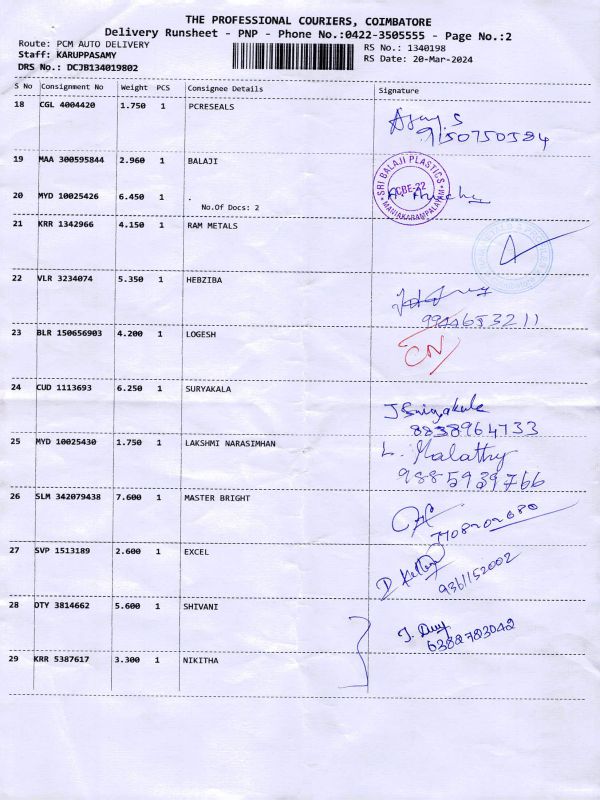 THE PROFESSIONAL COURIERS, COIMBATORE
Delivery Runsheet - PNP - Phone No.:0422-3505555 - Page No.:2
Route: PCM AUTO DELIVERY
RS No.: 1340198
Staff: KARUPPASAMY
RS Date: 20-Mar-2024
DRS No.: DCJB134019802
S No Consignment No Weight PCS Consignee Details Signature
18 CGL 4004420 1.750 1 PCRESEALS
9150750584
19 MAA 300595844 2.960 1 BALAJI
SRI BALAJI PLASTICS
CBE-22
MANIAKARAMPALAYAM
20 MYD 10025426 6.450 1 .
No.Of Docs: 2
21 KRR 1342966 4.150 1 RAM METALS
22 VLR 3234074 5.350 1 HEBZIBA
9944653211
23 BLR 150656903 4.200 1 LOGESH
CN
24 CUD 1113693 6.250 1 SURYAKALA
J Suryakala
8838964733
25 MYD 10025430 1.750 1 LAKSHMI NARASIMHAN
L. Malathy
9885939766
26 SLM 342079438 7.600 1 MASTER BRIGHT
7708202680
27 SVP 1513189 2.600 1 EXCEL
9361152002
28 DTY 3814662 5.600 1 SHIVANI
6382783042
29 KRR 5387617 3.300 1 NIKITHA